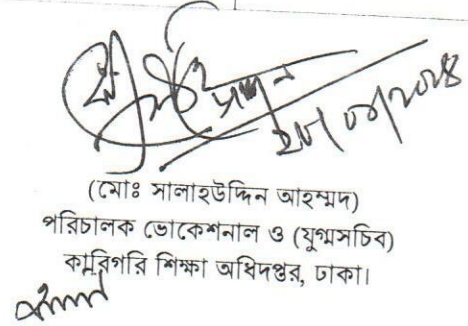 (মোঃ সালাহউদ্দিন আহম্মদ)
পরিচালক ভোকেশনাল ও (যুগ্মসচিব)
কারিগরি শিক্ষা অধিদপ্তর, ঢাকা।